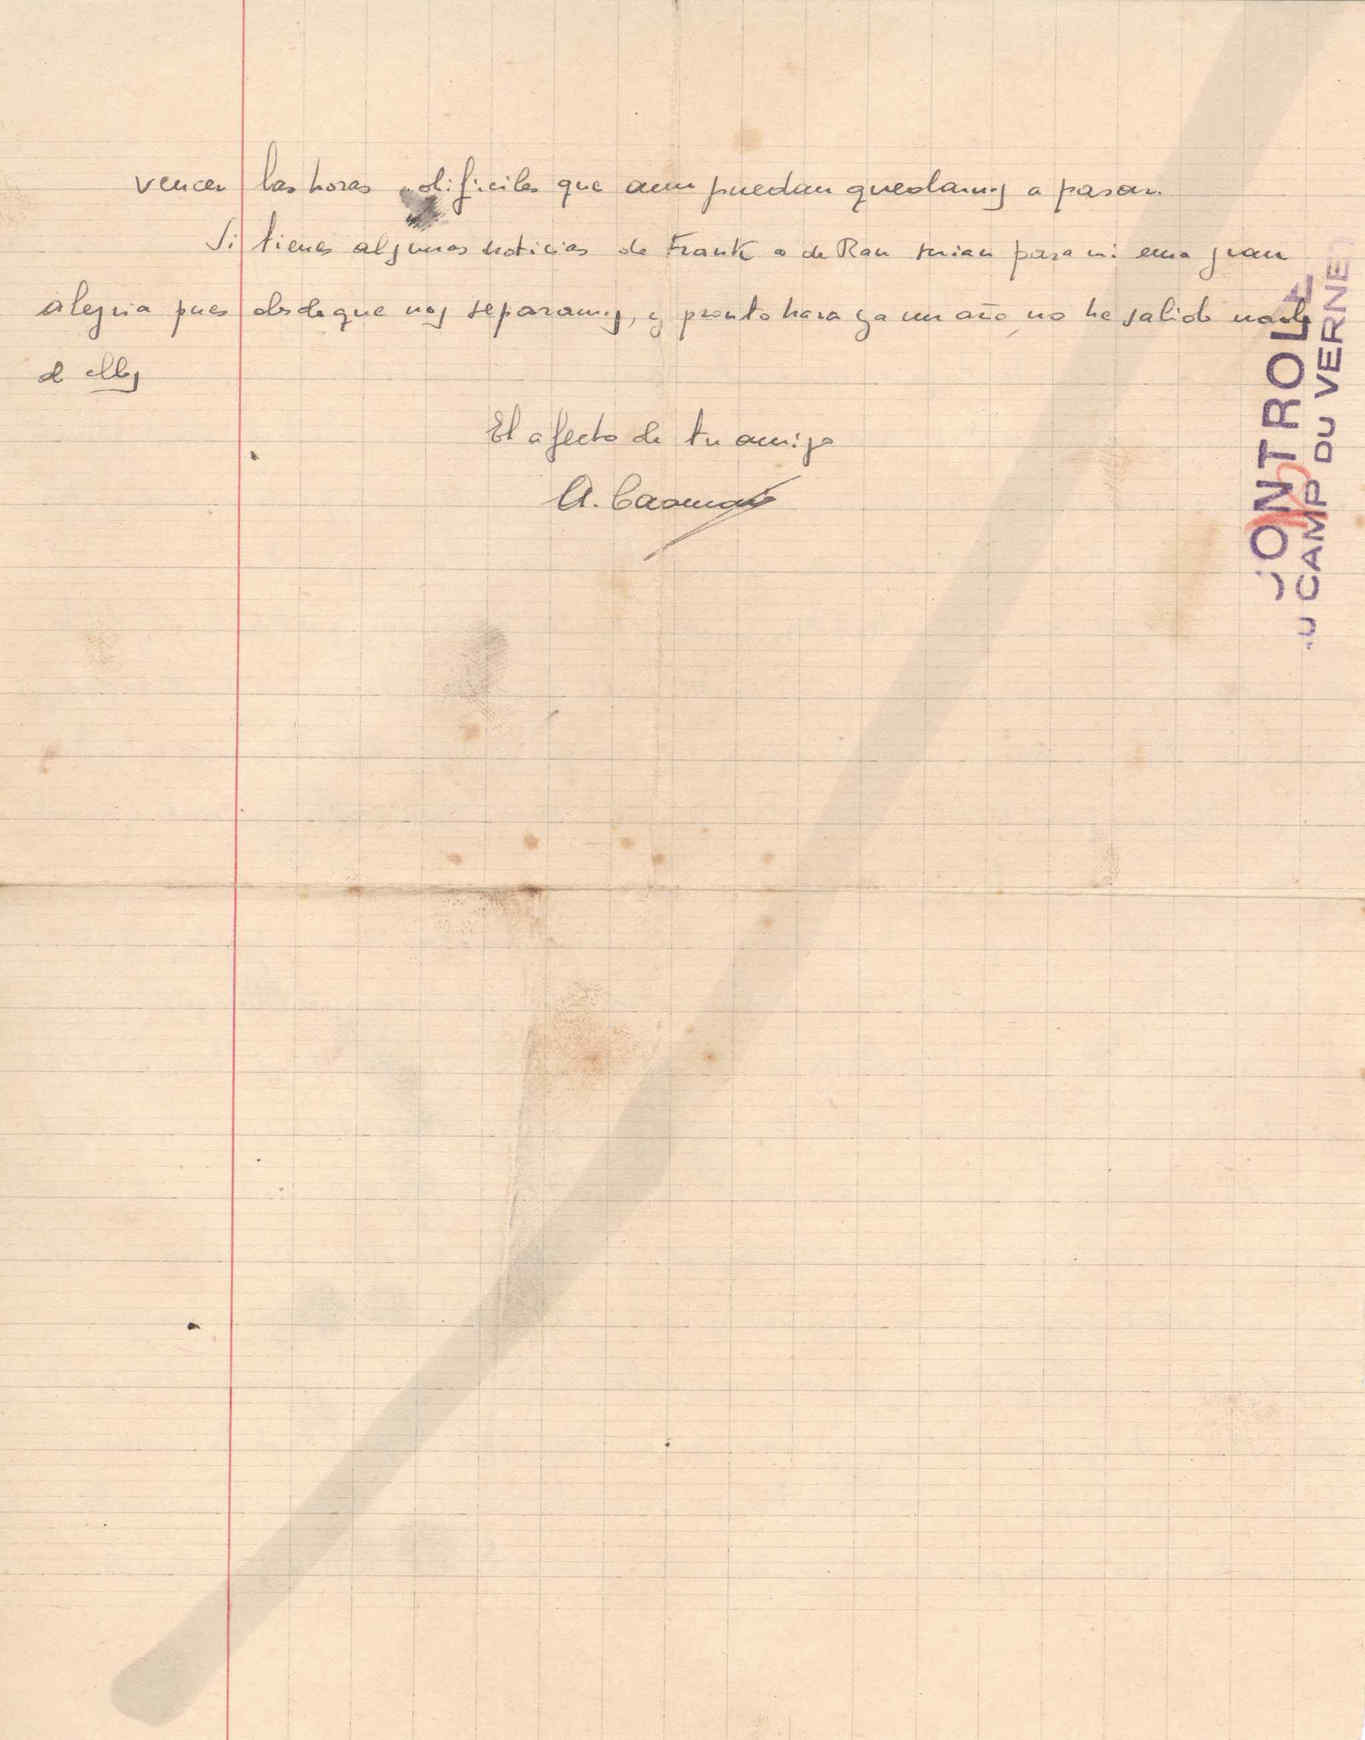 vencer las horas dificiles que aun puedan quedarnos a pasar.
Si tienes algunas noticias de Frank o de Rau serian para mi una gran
alegria pues desde que nos separamos, y pronto hara ya un año, no he salido nada
d ellos
El afecto de tu amigo
A.
CONTROLE
AU CAMP DU VERNET